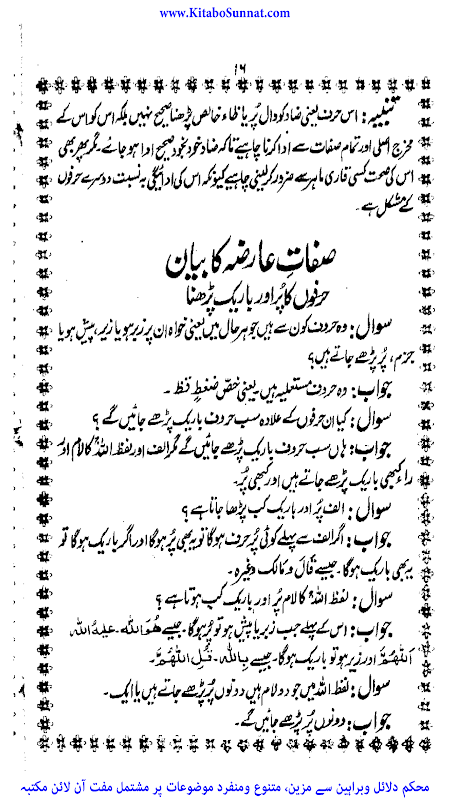 www.KitaboSunnat.com
۱۶
تنبیہ: اس حرف یعنی ضاد کو دال پُر یا ظاء خالص پڑھنا صحیح نہیں بلکہ اس کو اس کے
مخرج اصلی اور تمام صفات سے ادا کرنا چاہیے تاکہ ضاد خود بخود صحیح ادا ہو جائے۔ مگر پھر بھی
اس کی صحت کسی قاری ماہر سے ضرور کرلینی چاہیے کیونکہ اس کی ادائیگی بہ نسبت دوسرے حرفوں
کے مشکل ہے۔
صفاتِ عارضہ کا بیان
حرفوں کا پُر اور باریک پڑھنا
سوال: وہ حروف کون سے ہیں جو ہر حال میں یعنی خواہ ان پر زبر ہو یا زیر، پیش ہو یا
جزم، پُر پڑھے جاتے ہیں؟
جواب: وہ حروف مستعلیہ ہیں یعنی خُصَّ ضَغْطٍ قِظْ۔
سوال: کیا ان حرفوں کے علاوہ سب حروف باریک پڑھے جائیں گے؟
جواب: ہاں سب حروف باریک پڑھے جائیں گے مگر الف اور لفظ اللہ کا لام اور
راء کبھی باریک پڑھے جاتے ہیں اور کبھی پُر۔
سوال: الف پُر اور باریک کب پڑھا جاتا ہے؟
جواب: اگر الف سے پہلے کوئی پُر حرف ہوگا تو یہ بھی پُر ہوگا اور اگر باریک ہوگا تو
یہ بھی باریک ہوگا۔ جیسے قَالَ و مَالِك وغیرہ۔
سوال: لفظ اللہ کا لام پُر اور باریک کب ہوتا ہے؟
جواب: اس کے پہلے جب زبر یا پیش ہو تو پُر ہوگا۔ جیسے هُوَاللہ۔ عَلَيْهُ اللہ
اَللّٰهُمَّ اور زیر ہو تو باریک ہوگا۔ جیسے بِاللہ۔ قُلِ اللّٰهُمَّ۔
سوال: لفظ اللہ میں جو دو لام ہیں دونوں پُر پڑھے جاتے ہیں یا ایک۔
جواب: دونوں پُر پڑھے جائیں گے۔
محکم دلائل وبراہین سے مزین، متنوع ومنفرد موضوعات پر مشتمل مفت آن لائن مکتبہ